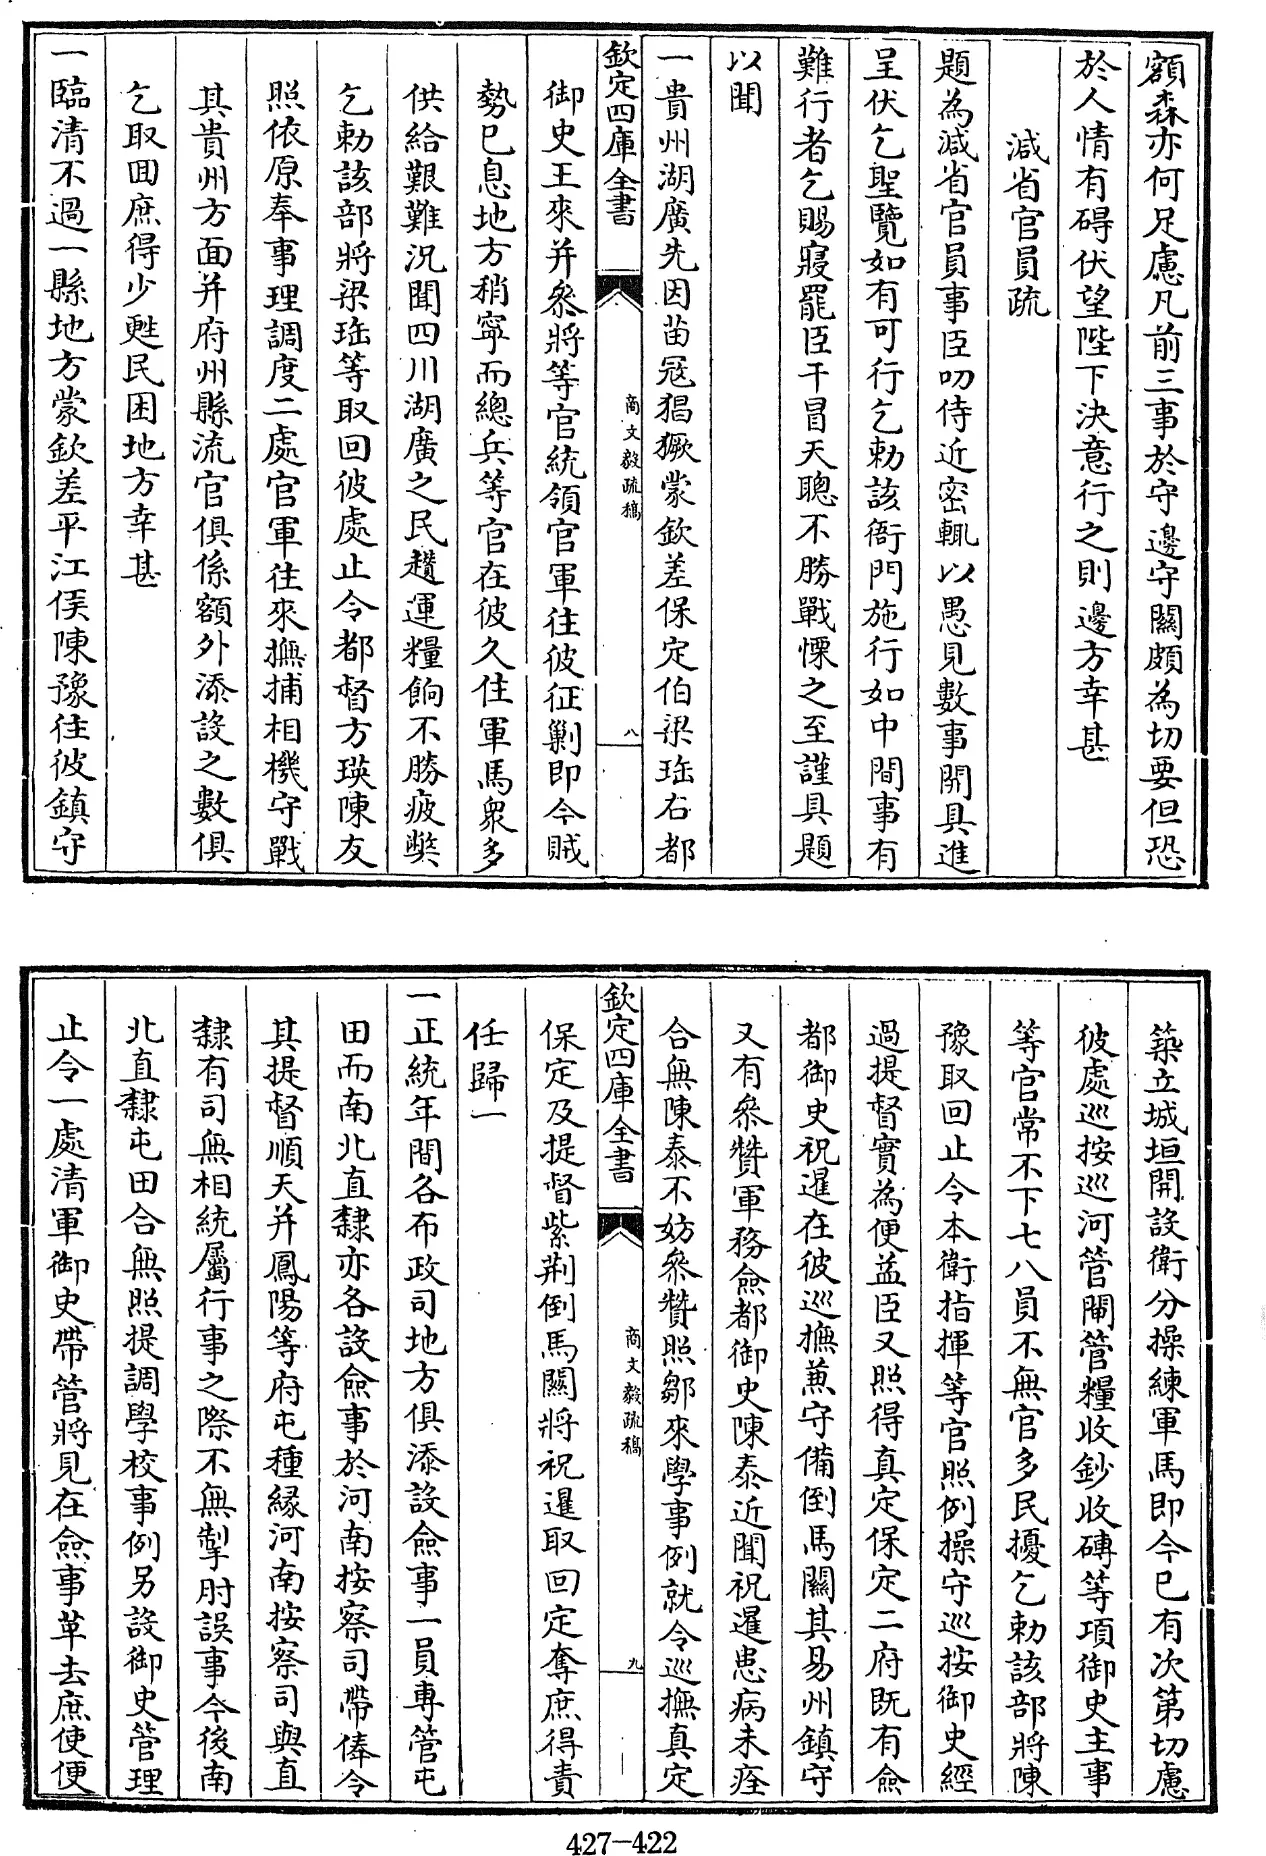 額森亦何足慮凡前三事於守邊守關頗為切要但恐
於人情有碍伏望陛下決意行之則邊方幸甚
減省官員疏
題為減省官員事臣叨侍近密輒以愚見數事開具進
呈伏乞聖覽如有可行乞勅該衙門施行如中間事有
難行者乞賜寢罷臣干冒天聰不勝戰慄之至謹具題
以聞
一貴州湖廣先因苗冦猖獗蒙欽差保定伯梁珤右都
欽定四庫全書
商文毅疏稿
八
御史王來并叅將等官統領官軍往彼征剿即今賊
勢已息地方稍寧而總兵等官在彼久住軍馬衆多
供給艱難況聞四川湖廣之民趲運糧餉不勝疲獘
乞勅該部將梁珤等取回彼處止令都督方瑛陳友
照依原奉事理調度二處官軍往來撫捕相機守戰
其貴州方面并府州縣流官俱係額外添設之數俱
乞取囬庶得少甦民困地方幸甚
一臨清不過一縣地方蒙欽差平江侯陳豫往彼鎮守
築立城垣開設衛分操練軍馬即今已有次第切慮
彼處巡按巡河管閘管糧收鈔收磚等項御史主事
等官常不下七八員不無官多民擾乞勅該部將陳
豫取回止令本衛指揮等官照例操守巡按御史經
過提督實為便益臣又照得真定保定二府既有僉
都御史祝暹在彼巡撫兼守備倒馬關其易州鎮守
又有叅贊軍務僉都御史陳泰近聞祝暹患病未痊
合無陳泰不妨叅贊照鄒來學事例就令巡撫真定
欽定四庫全書
商文毅疏稿
九
保定及提督紫荆倒馬關將祝暹取回定奪庶得責
任歸一
一正統年間各布政司地方俱添設僉事一員專管屯
田而南北直隸亦各設僉事於河南按察司帶俸令
其提督順天并鳳陽等府屯種緣河南按察司與直
隸有司無相統屬行事之際不無掣肘誤事今後南
北直隸屯田合無照提調學校事例另設御史管理
止令一處清軍御史帶管將見在僉事革去庶使便
427-422